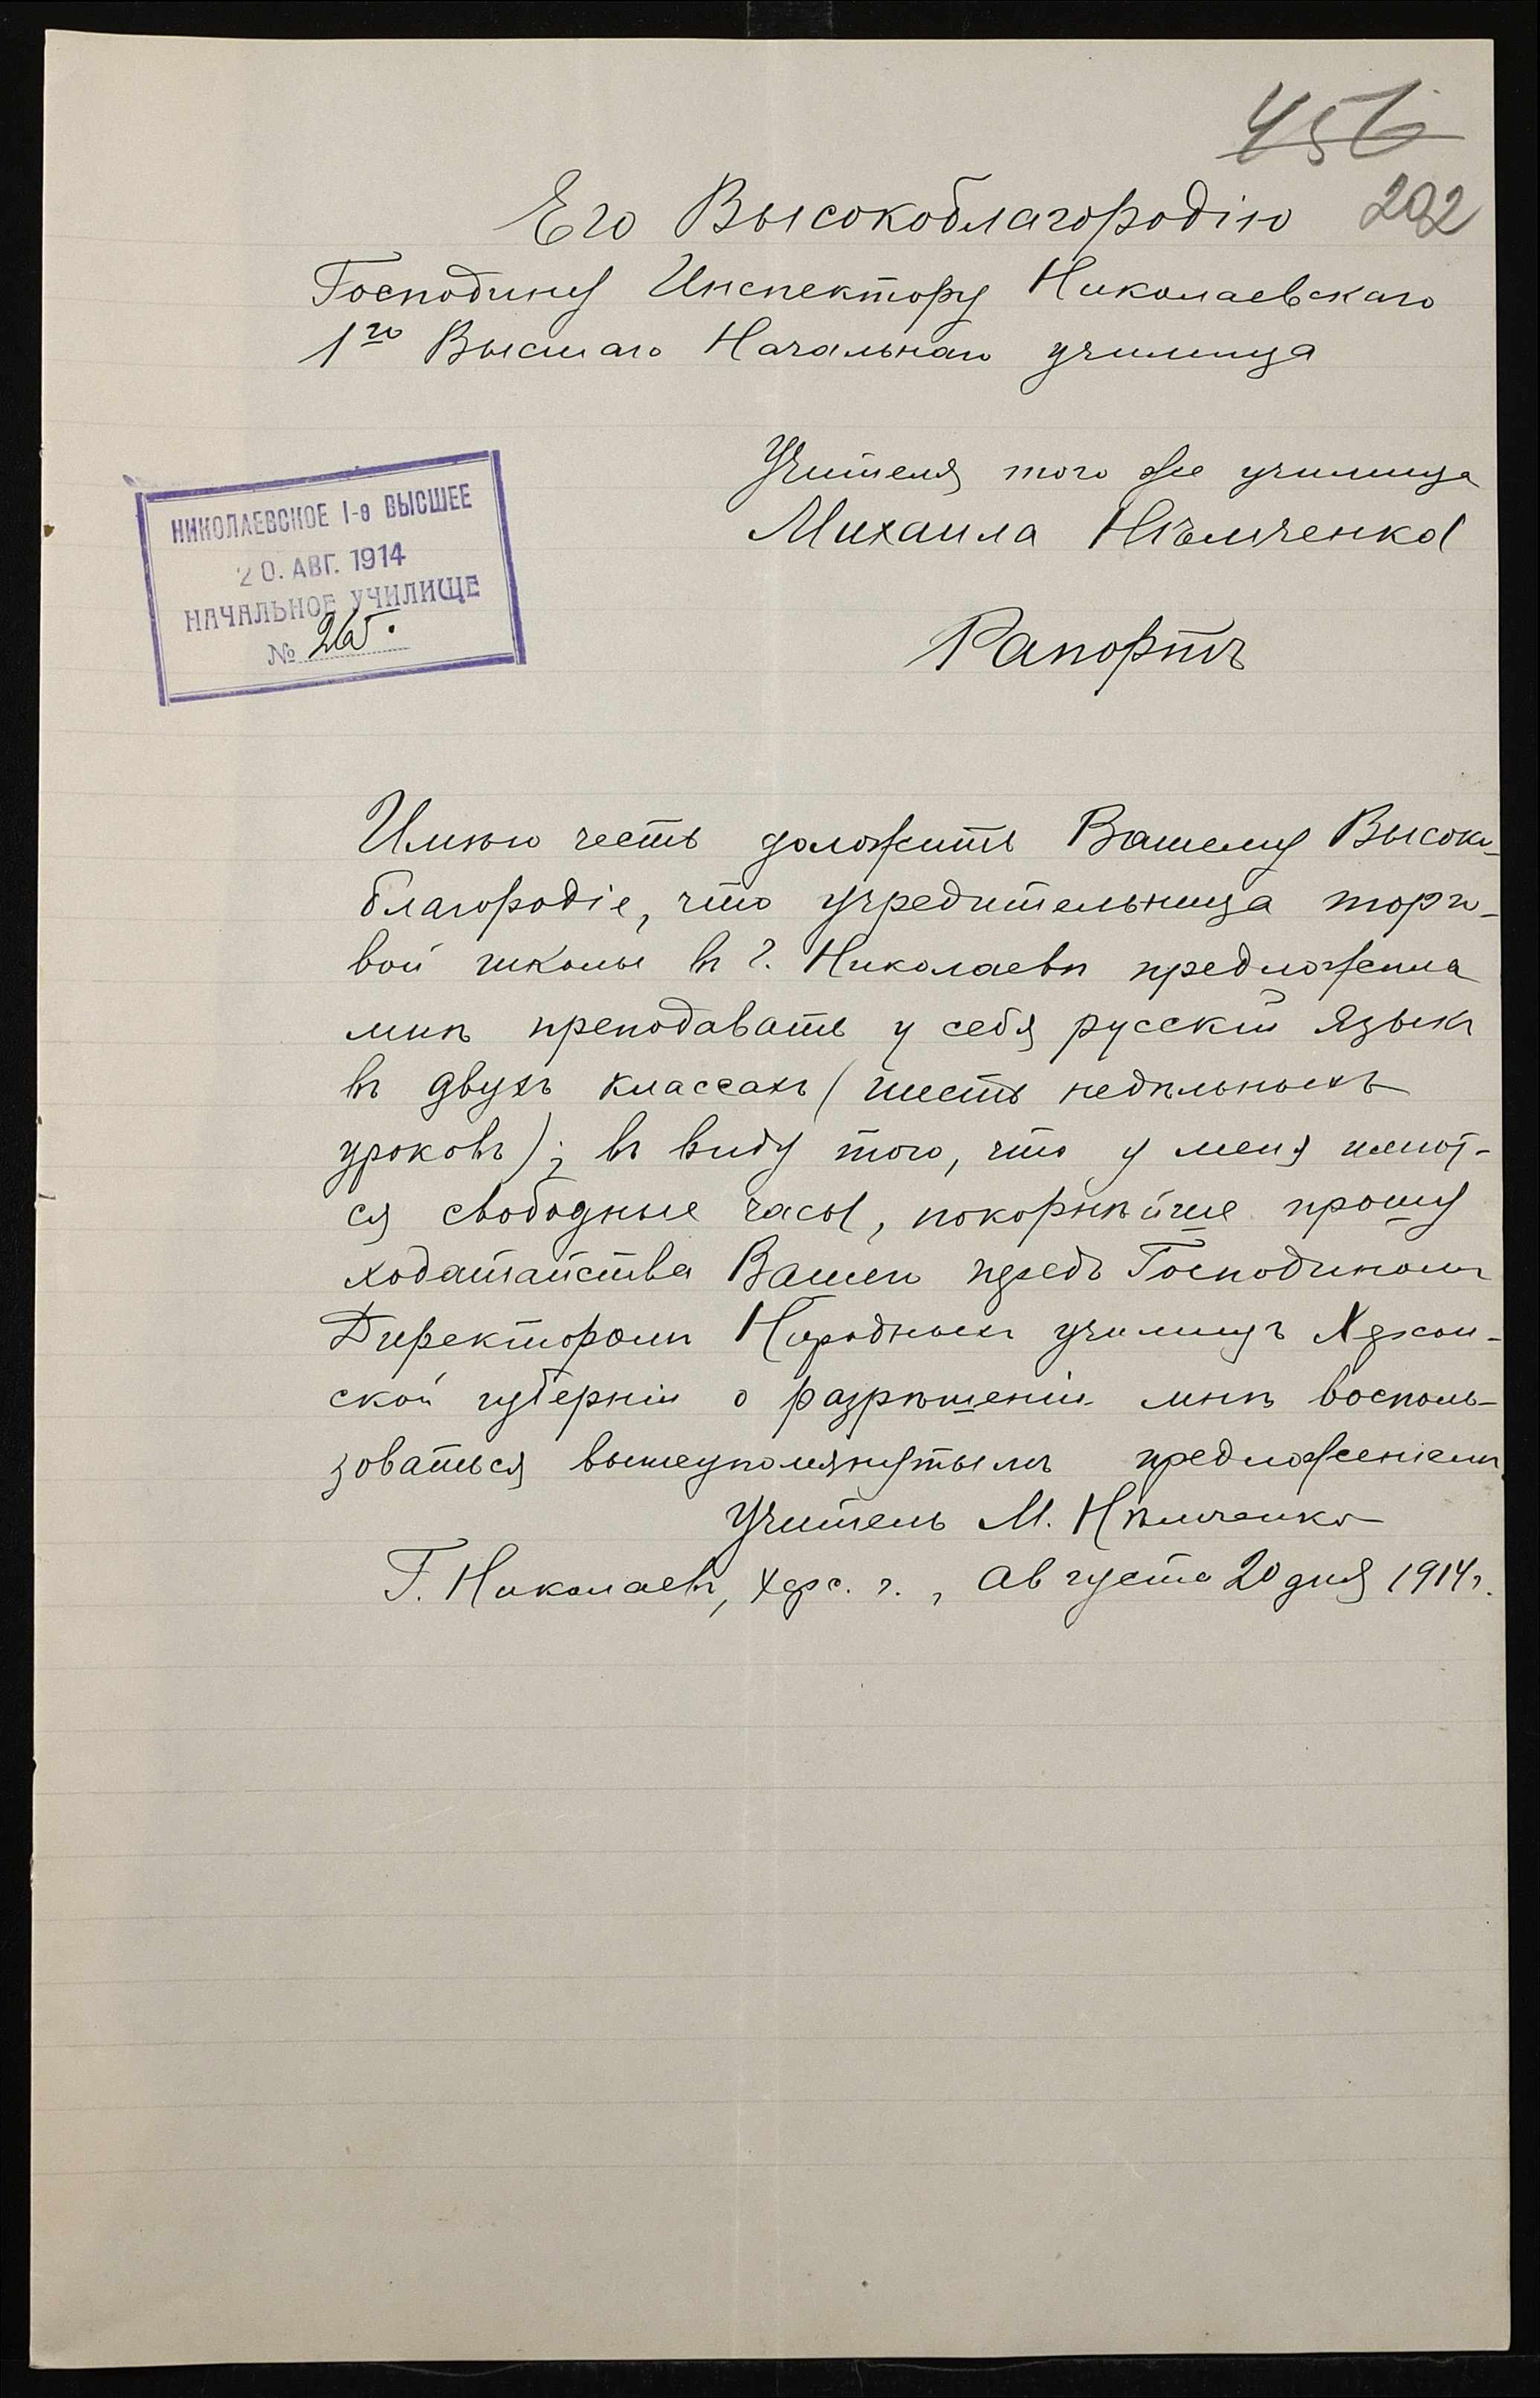 456
202
Его Высокоблагородію
Господину Инспектору Николаевскаго
1го Высшаго Начальнаго училища
Учителя того же училища
Михаила Нѣмченко
НИКОЛАЕВСКОЕ 1-е ВЫСШЕЕ
20. АВГ. 1914
НАЧАЛЬНОЕ УЧИЛИЩЕ
№ 265.
Рапортъ
Имѣю честь доложить Вашему Высоко-
благородіе, что учредительница торго-
вой школы въ г. Николаевѣ предложила
мнѣ преподавать у себя русскій языкъ
въ двухъ классахъ (шесть недѣльныхъ
уроковъ); въ виду того, что у меня имеют-
ся свободные часы, покорнѣйше прошу
ходатайства Вашего предъ Господиномъ
Директоромъ Народныхъ училищъ Херсон-
ской губерніи о разрѣшеніи мнѣ восполь-
зоваться вышеупомянутымъ предложеніемъ
Учитель М. Нѣмченко
Г. Николаевъ, Херс. г., Августа 20 дня 1914 г.